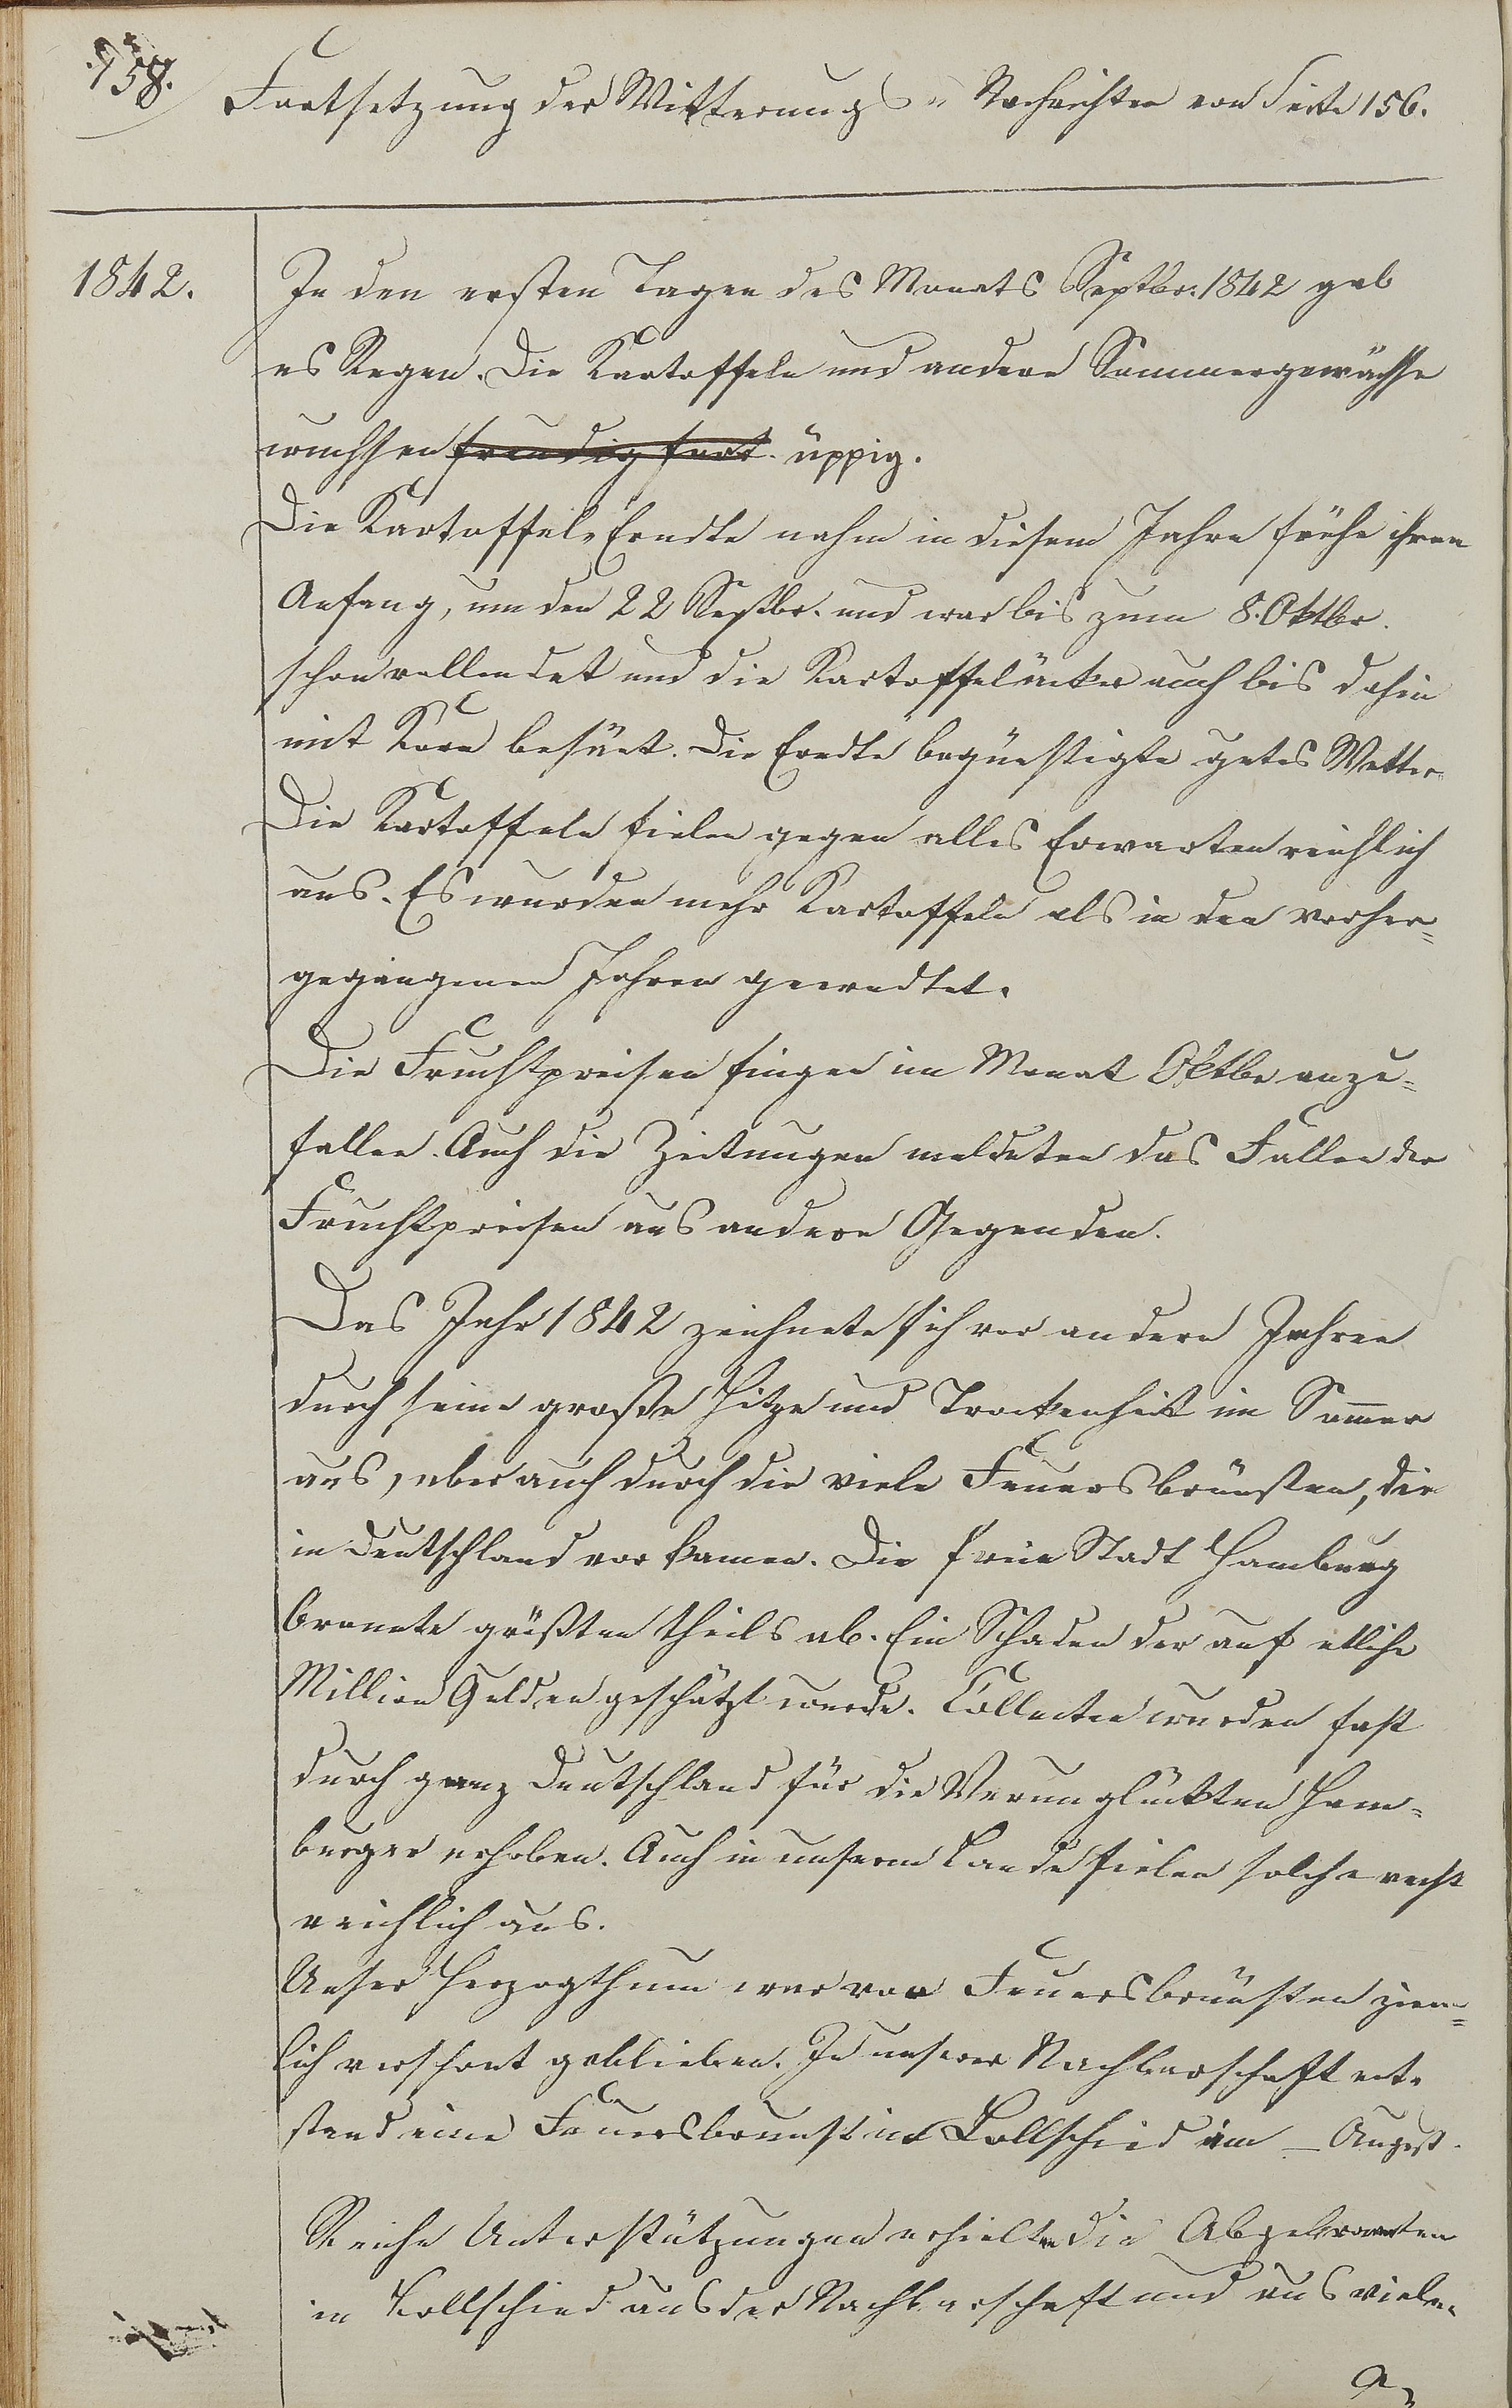 158.
Fortsetzung der Witterungs- Nachrichten von Seite 156.
1842.
In den ersten Tagen des Monats Septbr. 1842 gab
es Regen. Die Kartoffeln und andere Sommergewächse
wuchsen freudig fort. üppig.
Die Kartoffel-Erndte nahm in diesem Jahre frühe ihren
Anfang, um den 22 Septbr. und war bis zum 8. Oktbr.
schon vollendet und die Kartoffeläcker auch bis dahin
mit Korn besäet. Die Erndte begünstigte gutes Wetter.
Die Kartoffeln fielen gegen alles Erwarten reichlich
aus. Es wurden mehr Kartoffeln als in den vorher=
gegangenen Jahren geerndtet.
Die Fruchtpreisen fingen im Monat Oktbr anzu=
fallen. Auch die Zeitungen meldeten das Fallen der
Fruchtpreisen aus andern Gegenden.
Das Jahr 1842 zeichnete sich vor andern Jahren
durch seine große Hitze und Trockenheit im Sommer
aus, aber auch durch die viele Feuersbrünsten, die
in Deutschland vor kamen. Die freie Stadt Hamburg
brannte größten theils ab. Ein Schaden der auf etliche
Million Gulden geschätzt wurde. Collecten wurden fast
durch ganz Deutschland für die Verunglückten Ham=
burger erhoben. Auch in unserm Lande fielen solche recht
reichlich aus.
Unser Herzogthum war von Feuersbrünsten ziem=
lich verschont geblieben. In unserer Nachbarschaft ent-
stand eine Feuersbrunst in Lollschied im _ August.
Reiche Unterstützungen erhielten die Abgebrannten
in Lollschied aus der Nachbarschaft und aus vielen